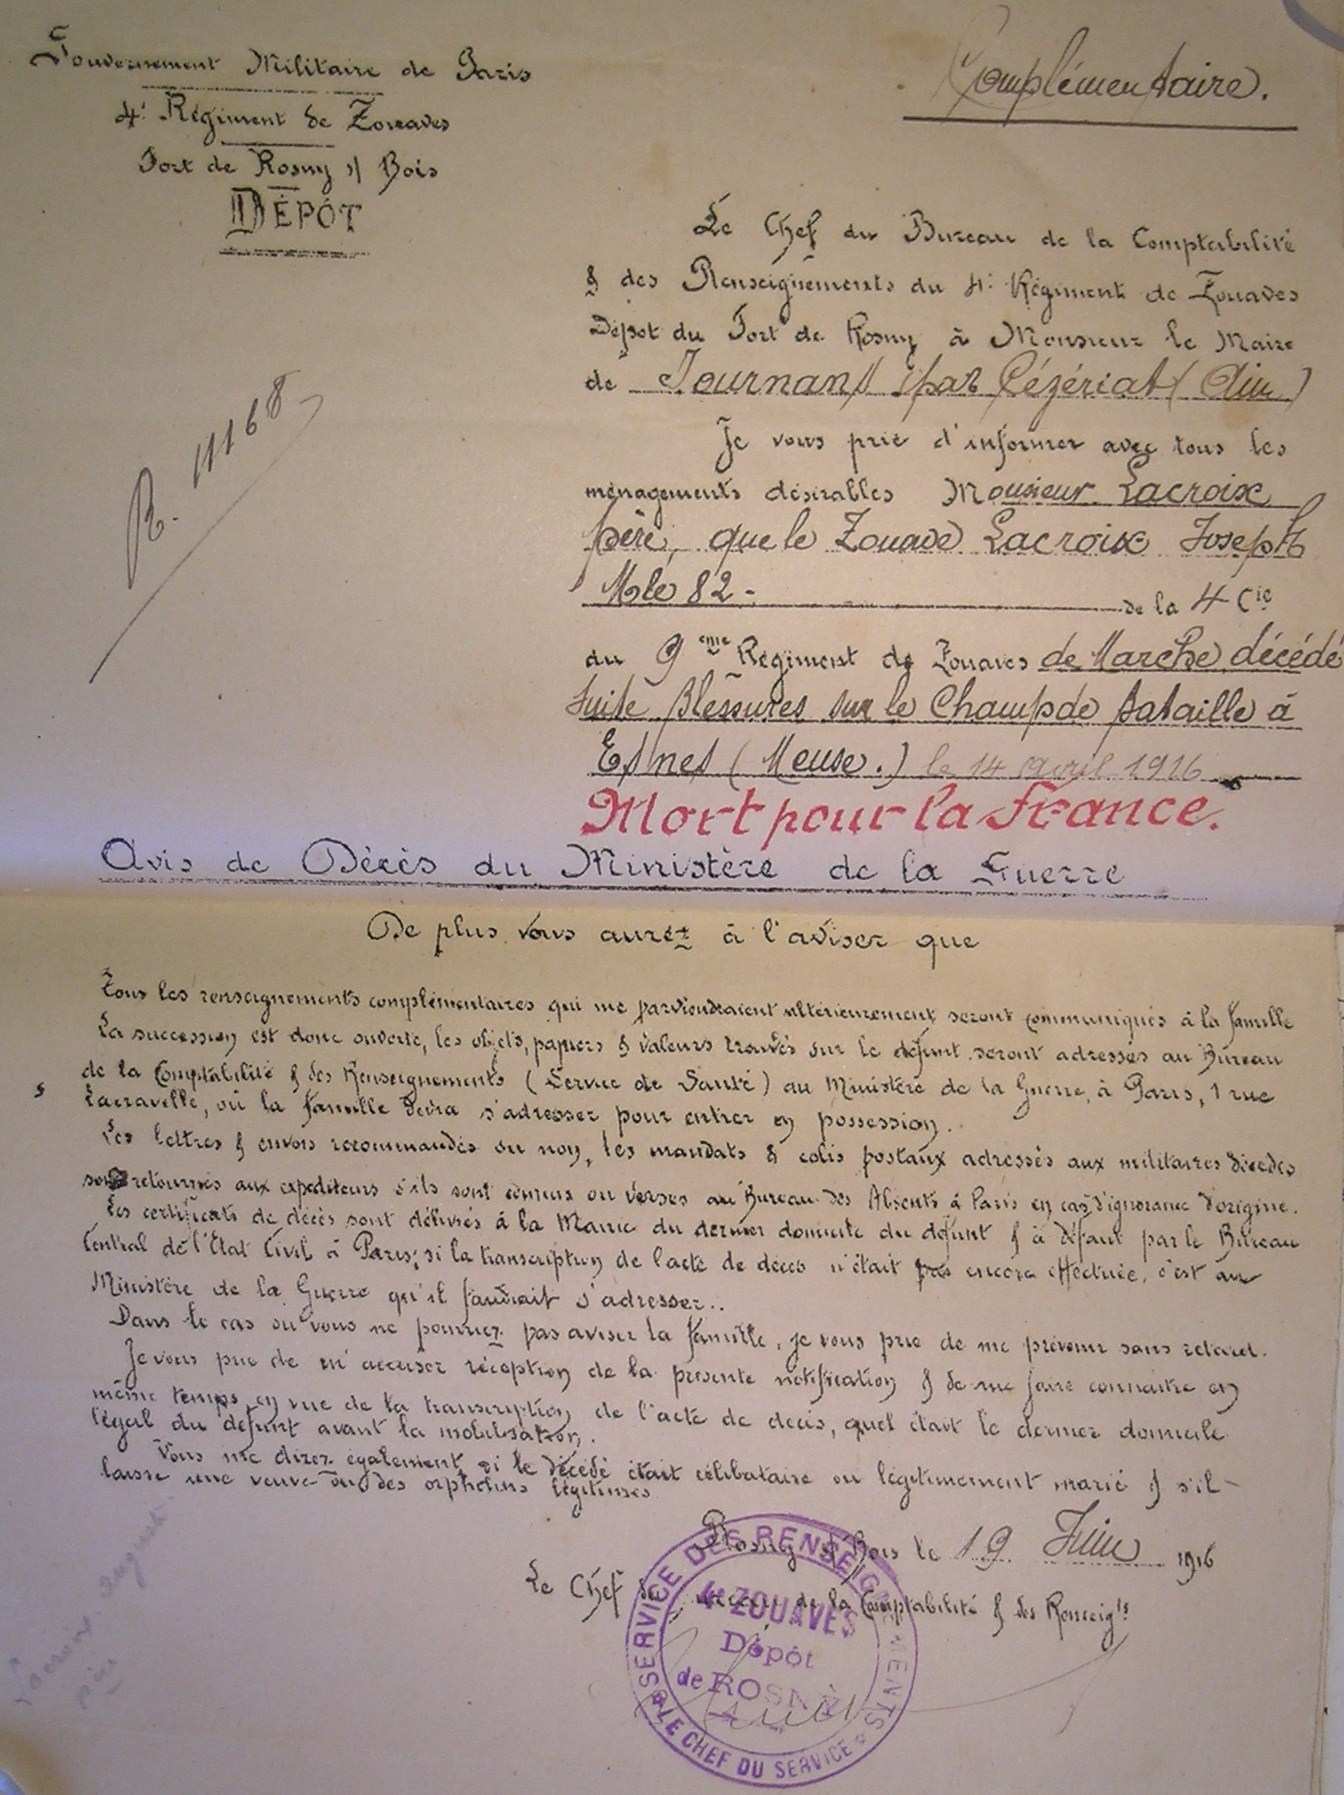 Gouvernement Militaire de Paris
4e Régiment de Zouaves
Fort de Rosny s/ Bois
DÉPÔT
Complémentaire.
Le Chef du Bureau de la Comptabilité
& des Renseignements du 4e Régiment de Zouaves
Dépôt du Fort de Rosny à Monsieur le Maire
de Journans par Cézériat (Ain)
R. 11168
Je vous prie d'informer avec tous les
ménagements désirables Monsieur Lacroix
père, que le Zouave Lacroix Joseph
Mle 82 - de la 4 Cie
du 9eme Régiment de Zouaves de Marche, décédé
suite blessures sur le Champ de bataille à
Esnes (Meuse.) le 14 avril 1916
Mort pour la France.
Avis de Décès du Ministère de la Guerre
De plus vous aurez à l'aviser que
Tous les renseignements complémentaires qui me parviendraient ultérieurement seront communiqués à la famille
La succession est donc ouverte, les objets, papiers & valeurs trouvés sur le défunt seront adressés au Bureau
de la Comptabilité & des Renseignements (Service de Santé) au Ministère de la Guerre, à Paris, 1 rue
Lacravelle, où la famille devra s'adresser pour entrer en possession.
Les lettres & envois recommandés ou non, les mandats & colis postaux adressés aux militaires décédés
sont retournés aux expéditeurs s'ils sont connus ou versés au Bureau des Absents à Paris en cas d'ignorance d'origine.
Les certificats de décès sont délivrés à la Mairie du dernier domicile du défunt & à défaut par le Bureau
Central de l'Etat Civil à Paris; si la transcription de l'acte de décès n'était pas encore effectuée, c'est au
Ministère de la Guerre qu'il faudrait s'adresser..
Dans le cas où vous ne pourriez pas aviser la famille, je vous prie de me prévenir sans retard.
Je vous prie de m'accuser réception de la présente notification & de me faire connaître en
même temps, en vue de la transcription de l'acte de décès, quel était le dernier domicile
légal du défunt avant la mobilisation.
Vous me direz également si le décédé était célibataire ou légitimement marié & s'il
laisse une veuve ou des orphelins légitimes
Rosny s/ Bois le 19 Juin 1916
Le Chef du Bureau de la Comptabilité & des Renseigts
SERVICE DES RENSEIGNEMENTS
4e ZOUAVES
Dépôt
de ROSNY
LE CHEF DU SERVICE